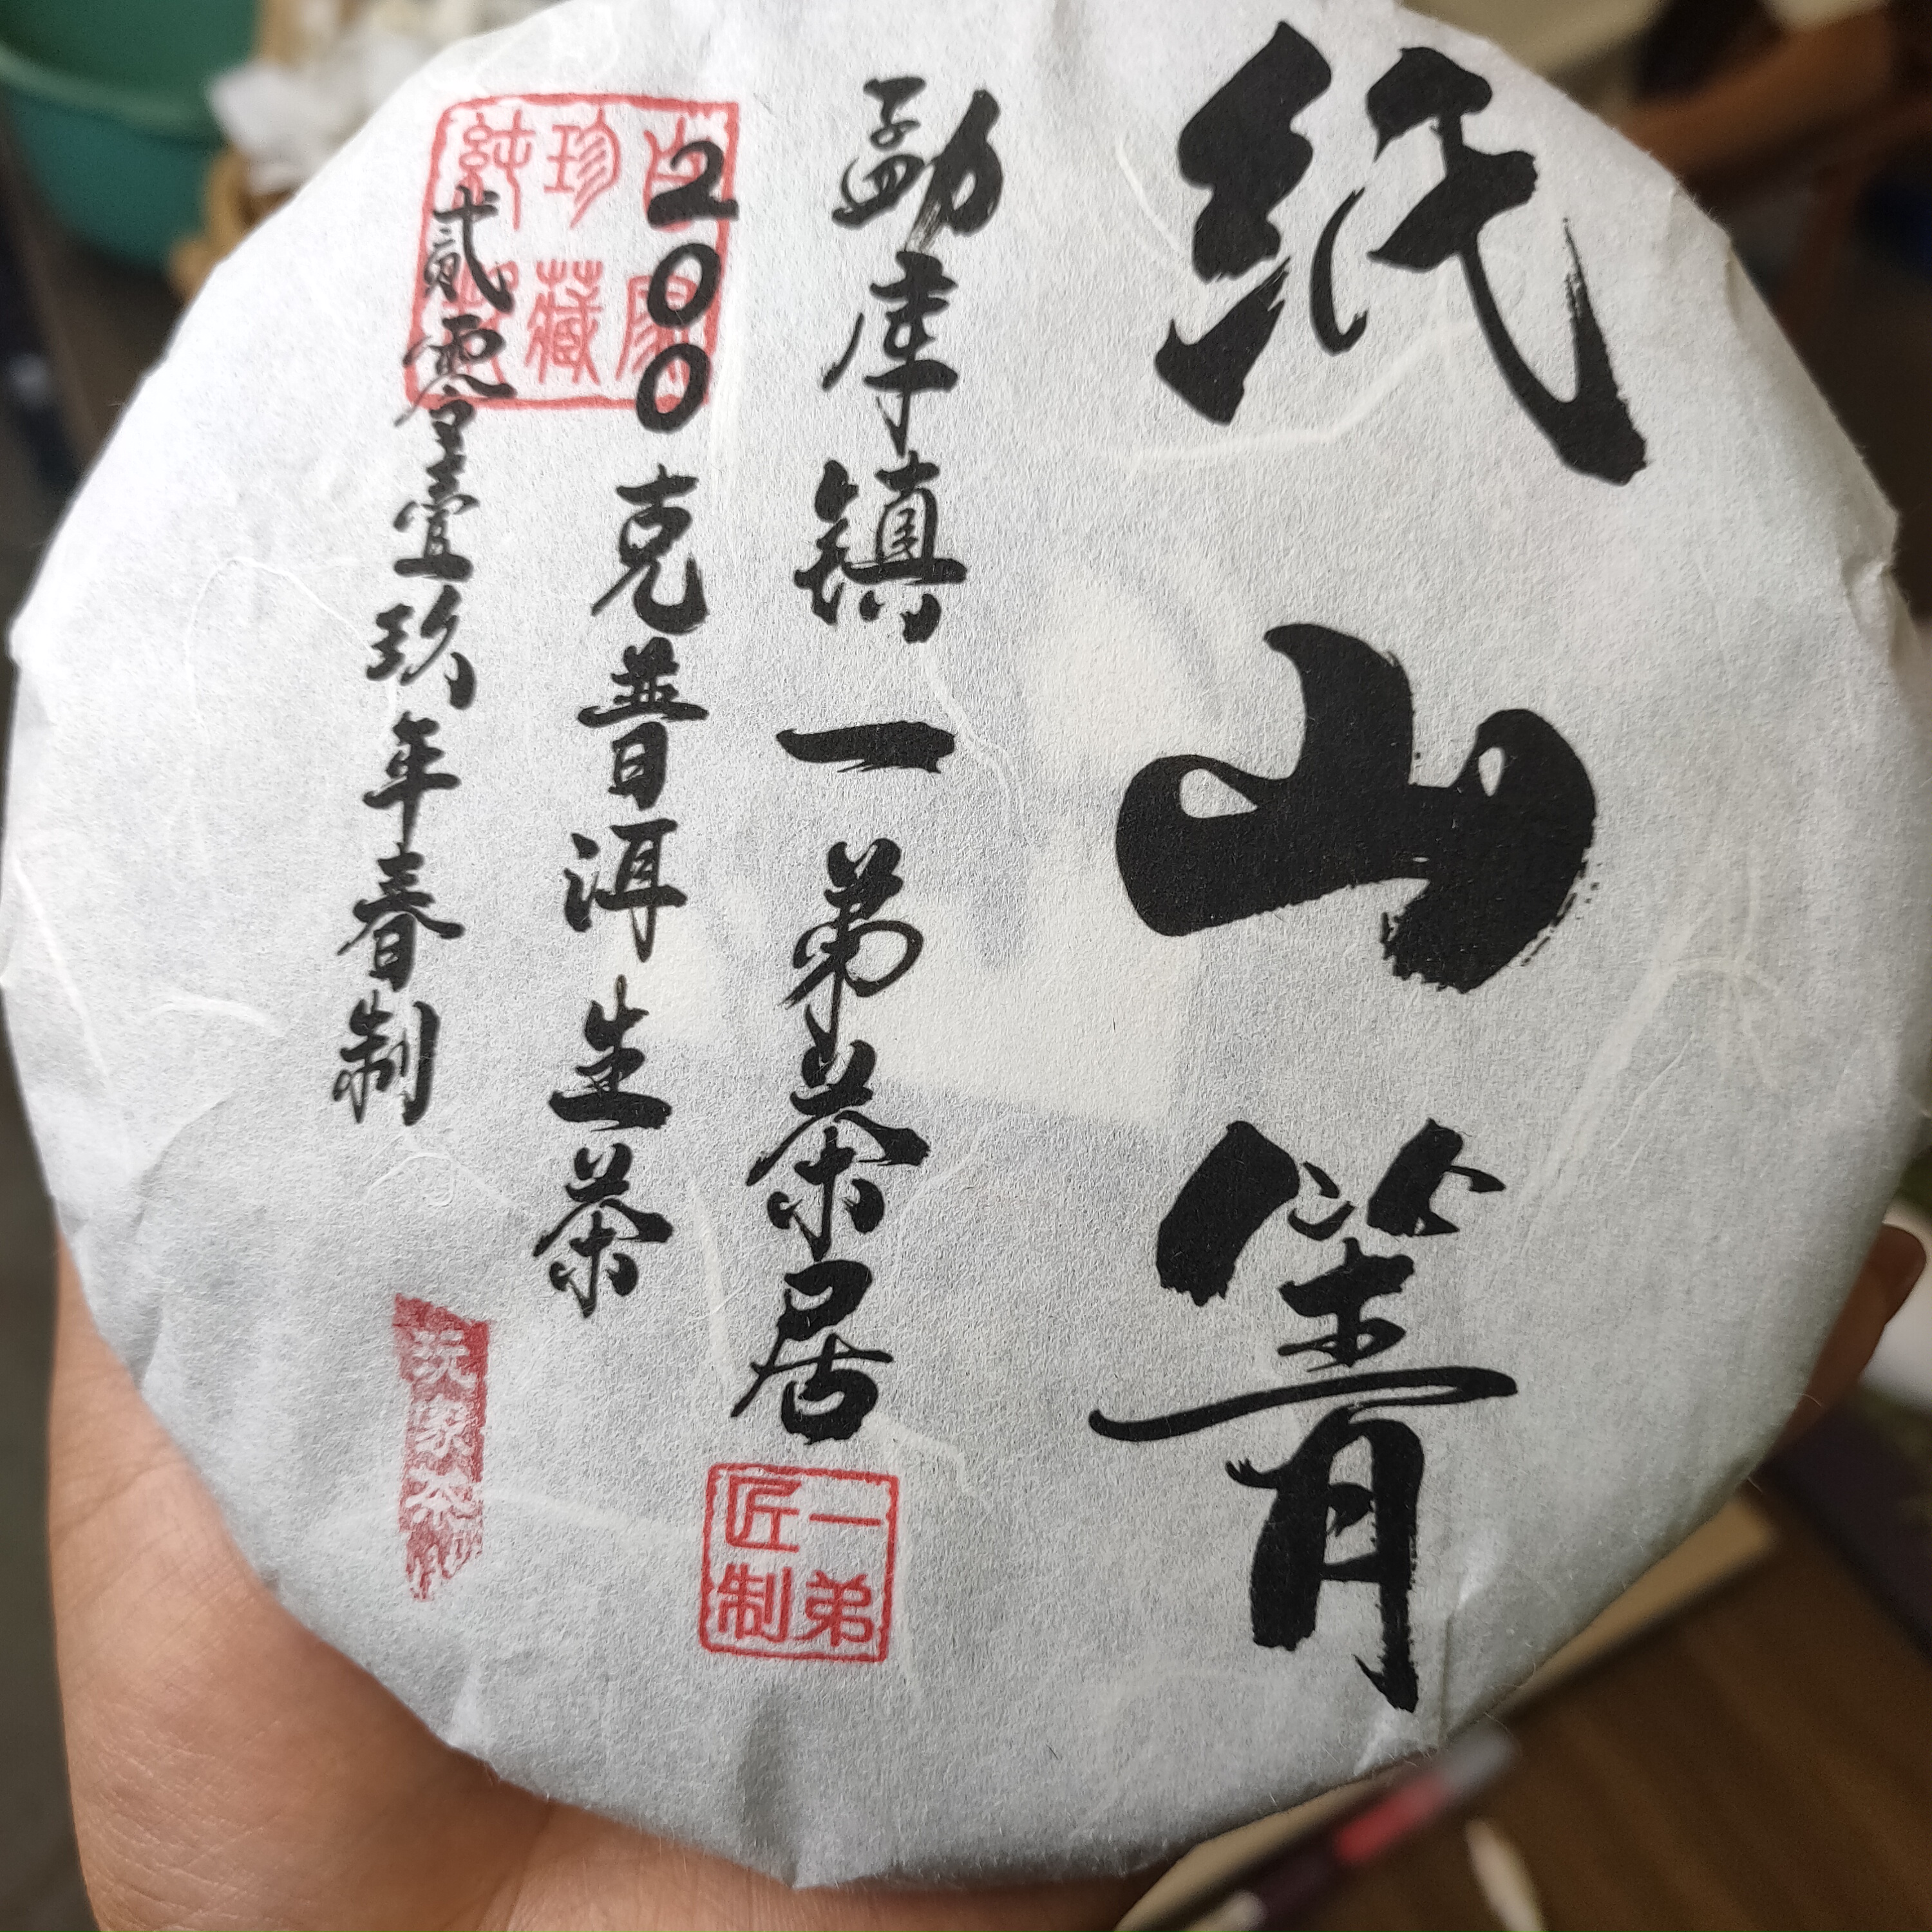 纸山箐
勐库镇一弟茶居
一弟
匠制
200克普洱生茶
贰零壹玖年春制
珍藏
玩家茶